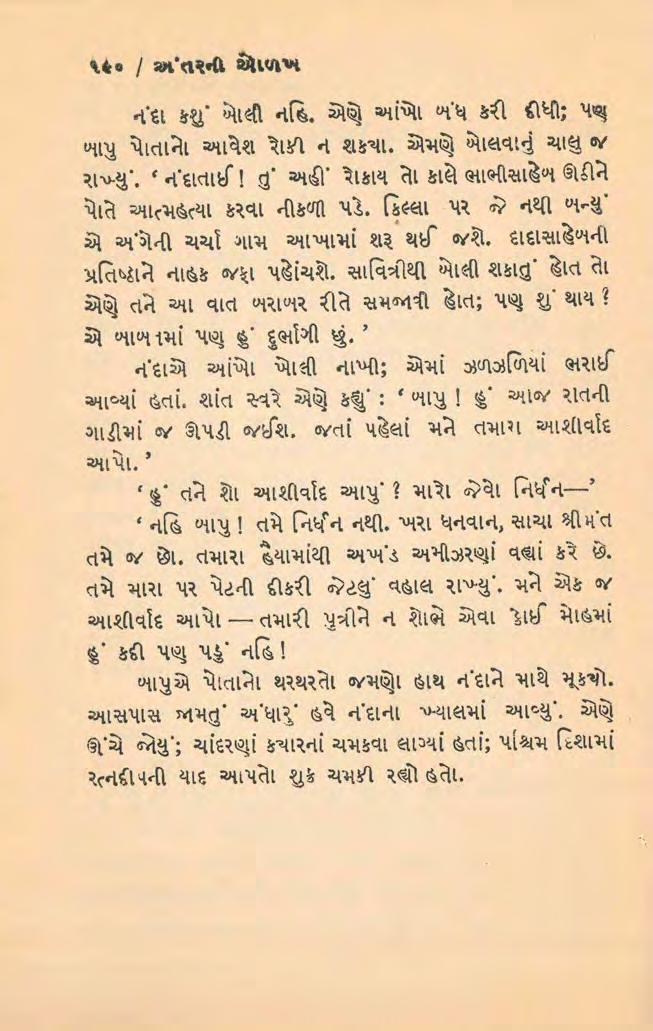 ૧૯૦ / અંતરની ઓળખ
નંદા કશું બોલી નહિ. એણે આંખો બંધ કરી દીધી; પણ
બાપુ પોતાનો આવેશ રોકી ન શક્યા. એમણે બોલવાનું ચાલુ જ
રાખ્યું. ‘ નંદાતાઈ ! તું અહીં રોકાય તો કાલે ભાભીસાહેબ ઊઠીને
પોતે આત્મહત્યા કરવા નીકળી પડે. કિલ્લા પર જે નથી બન્યું
એ અંગેની ચર્ચા ગામ આખામાં શરૂ થઈ જશે. દાદાસાહેબની
પ્રતિષ્ઠાને નાહક જફા પહોંચશે. સાવિત્રીથી બોલી શકાતું હોત તો
એણે તને આ વાત બરાબર રીતે સમજાવી હોત; પણ શું થાય ?
એ બાબતમાં પણ હું દુર્ભાગી છું. ’
નંદાએ આંખો ખોલી નાખી; એમાં ઝળઝળિયાં ભરાઈ
આવ્યાં હતાં. શાંત સ્વરે એણે કહ્યું : ‘ બાપુ ! હું આજ રાતની
ગાડીમાં જ ઊપડી જઈશ. જતાં પહેલાં મને તમારા આશીર્વાદ
આપો. ’
‘ હું તને શો આશીર્વાદ આપું ? મારો જેવો નિર્ધન—’
‘ નહિ બાપુ ! તમે નિર્ધન નથી. ખરા ધનવાન, સાચા શ્રીમંત
તમે જ છો. તમારા હૈયામાંથી અખંડ અમીઝરણાં વહ્યાં કરે છે.
તમે મારા પર પેટની દીકરી જેટલું વહાલ રાખ્યું. મને એક જ
આશીર્વાદ આપો — તમારી પુત્રીને ન શોભે એવા કોઈ મોહમાં
હું કદી પણ પડું નહિ !
બાપુએ પોતાનો થરથરતો જમણો હાથ નંદાને માથે મૂક્યો.
આસપાસ જામતું અંધારું હવે નંદાના ખ્યાલમાં આવ્યું. એણે
ઊંચે જોયું; ચાંદરણાં ક્યારનાં ચમકવા લાગ્યાં હતાં; પશ્ચિમ દિશામાં
રત્નદીપની યાદ આપતો શુક્ર ચમકી રહ્યો હતો.